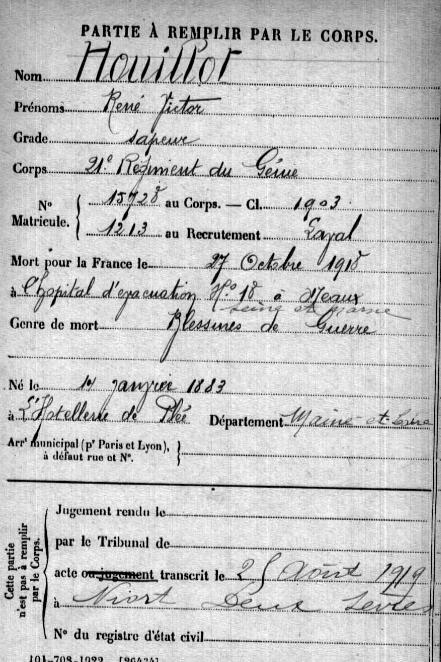 PARTIE À REMPLIR PAR LE CORPS.
Nom Houillot
Prénoms René Victor
Grade sapeur
Corps 21e Régiment du Génie
N° Matricule. { 15928 au Corps. — Cl. 1903
1213 au Recrutement Laval
Mort pour la France le 27 Octobre 1918
à l'hôpital d'évacuation N° 18 à Meaux
Seine et Marne
Genre de mort Blessures de Guerre
Né le 14 Janvier 1883
à L'Hotellerie de Flée Département Maine et Loire
Arrt municipal (pr Paris et Lyon), }
à défaut rue et N°.
Cette partie n'est pas à remplir par le Corps.
Jugement rendu le
par le Tribunal de
acte ou jugement transcrit le 25 Août 1919
à Niort Deux Sèvres
N° du registre d'état civil
101-708-1922. [26424]